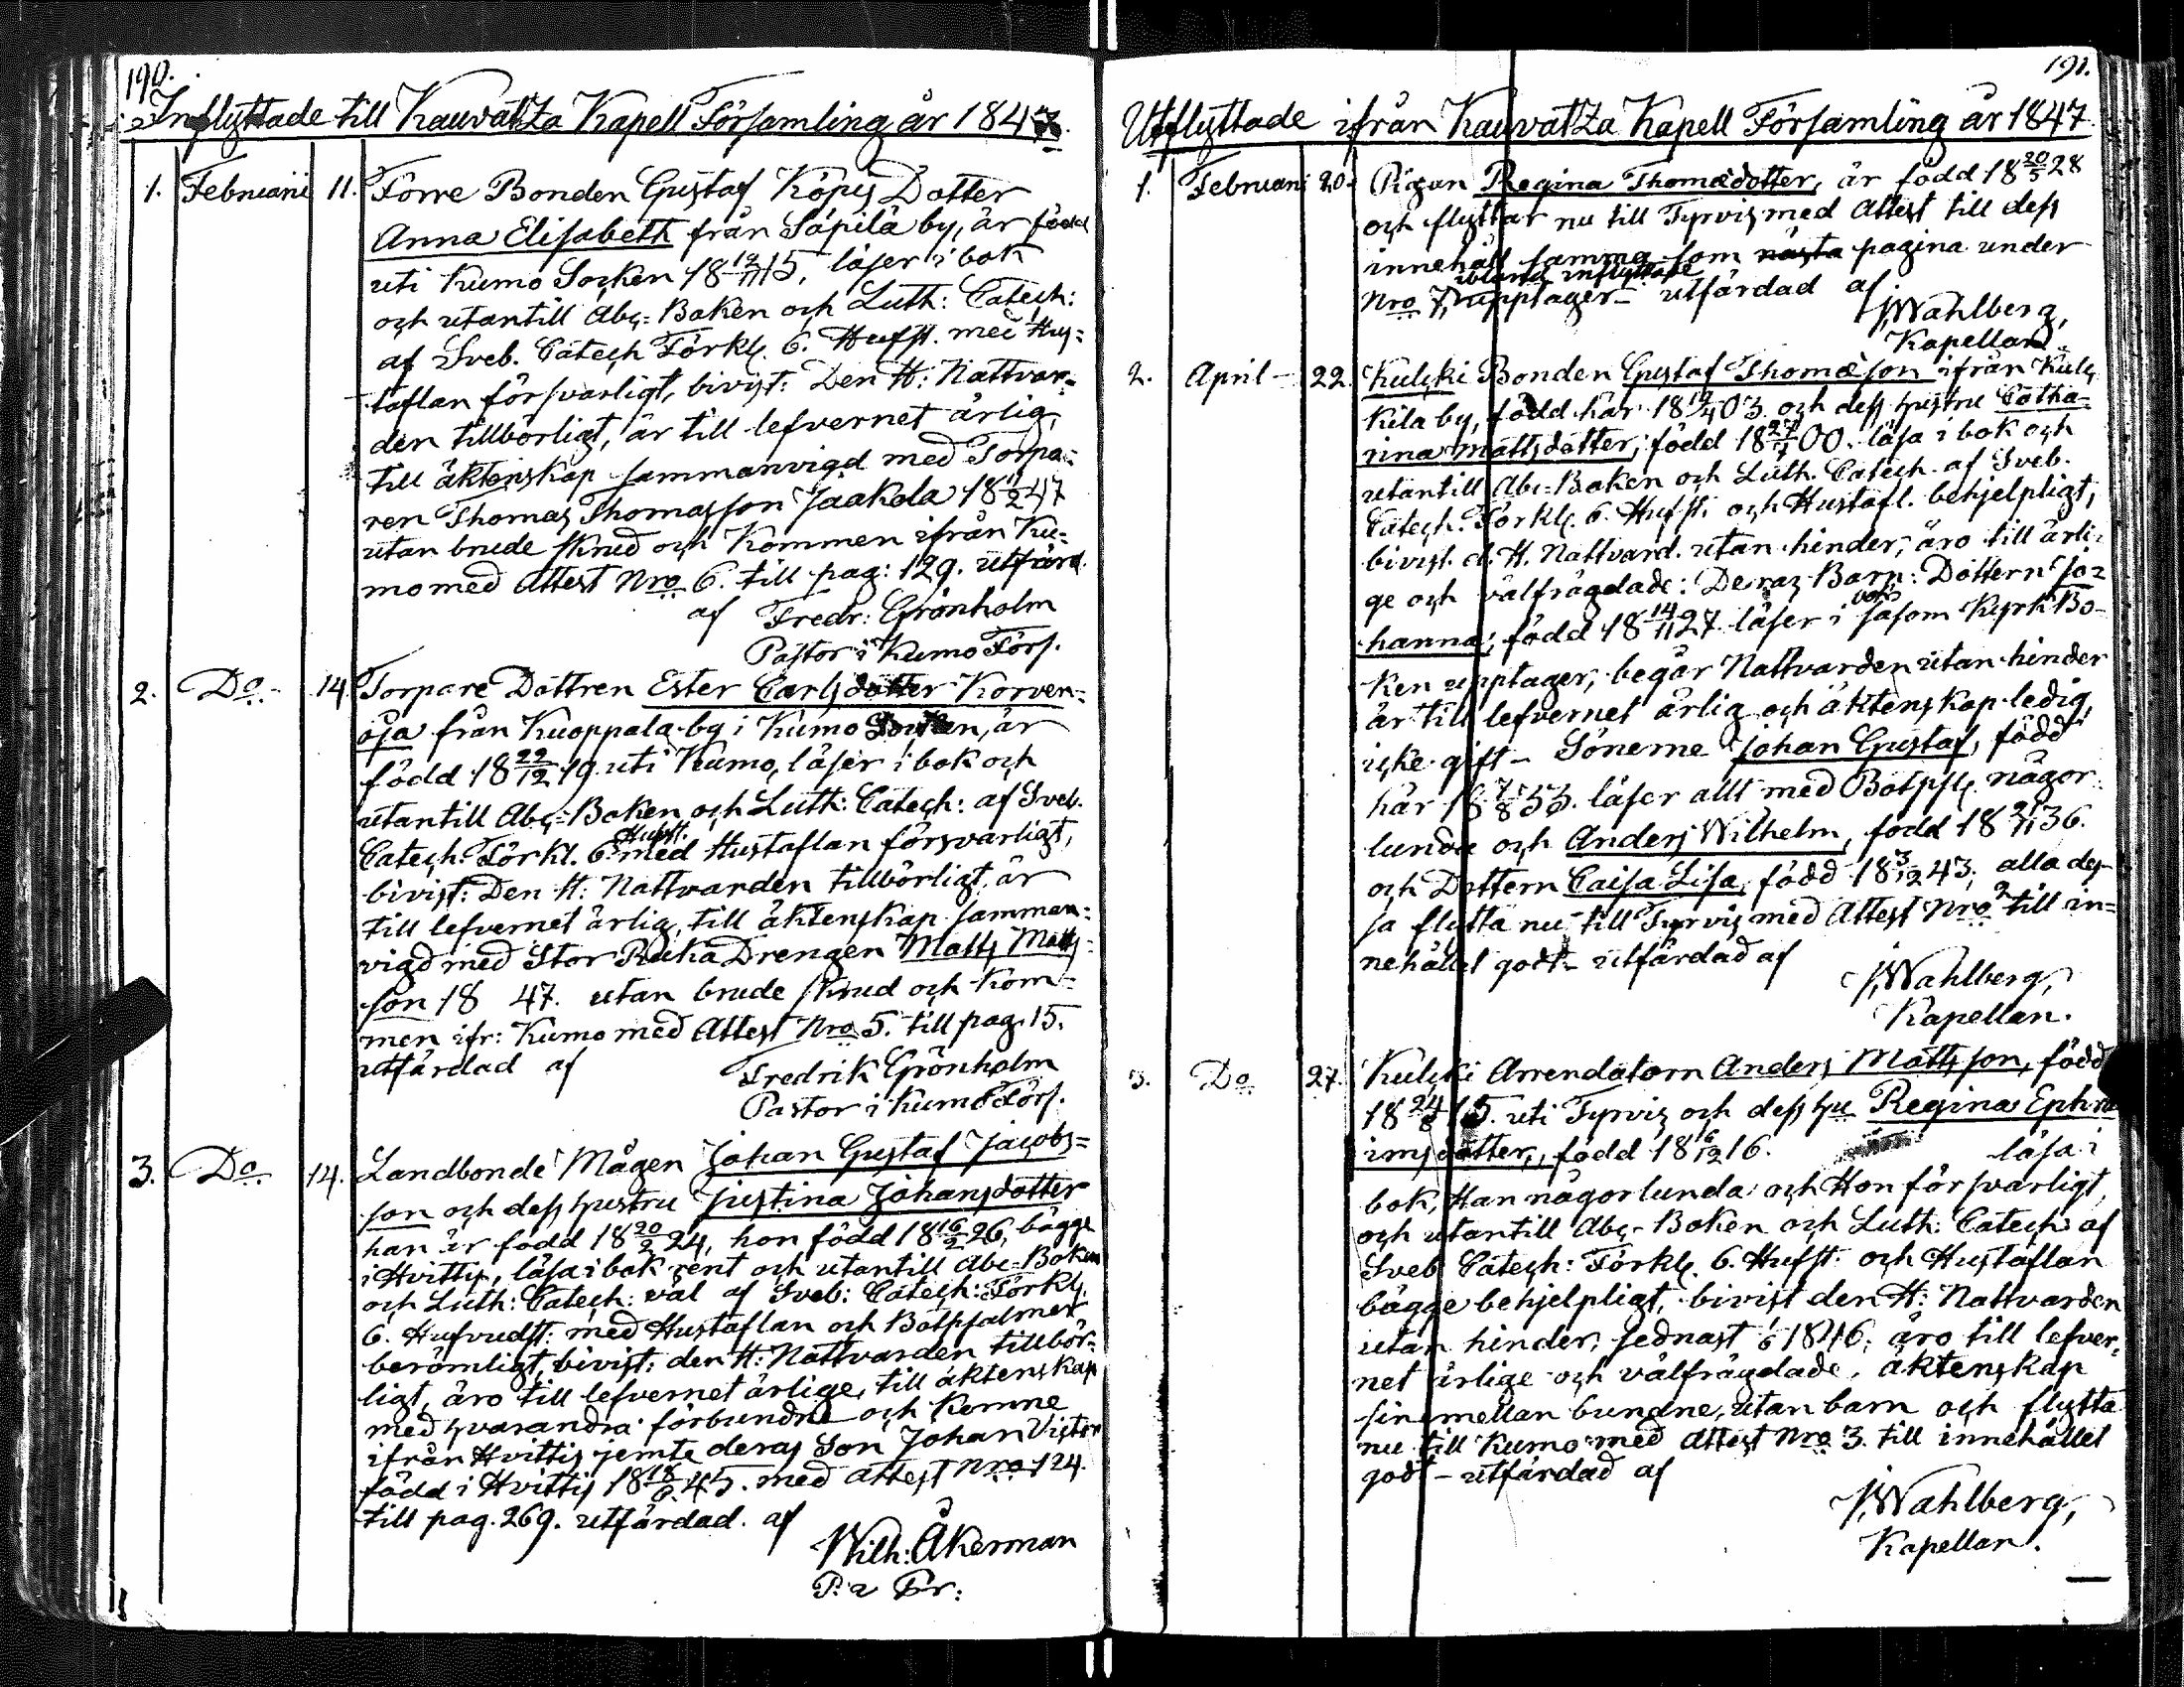 190.
Inflyttade till Kauvatza Kapell Församling år 1847.
1. Februarii 11. Förre Bonden Gustaf Köpis Dotter
Anna Elisabeth från Säpilä by, är född
uti Kumo Socken 18 12/11 15, läser i bok
och utantill Abc=Boken och Luth: Catech:
af Sveb. Catech Förkl. 6. Hufst. med Hus=
taflan försvarligt, bivist: Den H: Nattvar=
den tillbörligt, är till lefvernet ärlig,
till äktenskap sammanvigd med Torpa=
ren Thomas Thomasson Jaakola 18 11/2 47
utan brude skrud och Kommen ifrån Ku=
mo med Attest Nro 6. till pag: 129. utfärd.
af Fredr: Grönholm
Pastor i Kumo Förs.
2. Do 14. Torpare Dottren Ester Carlsdotter Korven=
oja från Kuoppala by i Kumo Socken, är
född 18 22/12 19 uti Kumo, läser i bok och
utantill Abc=Boken och Luth: Catech: af Sveb.
Catech. Förkl. 6 Hufst. med Hustaflan försvarligt,
bivist: Den H: Nattvarden tillbörligt, är
till lefvernet ärlig, till äktenskap samman=
vigd med Stor Ruka Drengen Matts Matts=
son 18 47. utan brude skrud och Kom=
men ifr: Kumo med Attest Nro 5. till pag. 15.
utfärdad af Fredrik Grönholm
Pastor i Kumo Förs.
3. Do 14. Landbonde Mågen Johan Gustaf Jacobs=
son och dess hustru Justina Johansdotter
han är född 18 20/2 24, hon född 18 16/2 26, bägge
i Hvittis, läsa i bok rent och utantill Abc=Boken
och Luth: Catech: väl af Sveb: Catech: Förkl.
6. Hufvudst: med Hustaflan och Botpsalmer
berömligt, bivist: den H: Nattvarden tillbör=
ligt, äro till lefvernet ärlige, till äktenskap
med hvarandra förbundne och Komne
ifrån Hvittis jemte deras Son Johan Victor
född i Hvittis 18 18/6 45. med attest Nro 124.
till pag. 269. utfärdad. af
Wilh: Åkerman
191.
Utflyttade ifrån Kauvatza Kapell Församling år 1847
1. Februarii 20. Pigan Regina Thomædotter, är född 18 20/5 28
och flyttar nu till Tyrvis med Attest till dess
innehåll samma som nästa pagina under
ibland inflyttade
Nro 7, upptager - utfärdad af
J. Wahlberg,
Kapellan.
2. April 22. Kulcki Bonden Gustaf Thomæson ifrån Kulc
kila by, född här 18 03. och dess hustru Catha=
rina Mattsdotter, född 18 27/7 00. läsa i bok och
utantill Abc=Boken och Luth. Catech. af Sveb.
Catech. Förkl. 6. Hufst. och Hustafl. behjelpligt,
bivist. d. H. Nattvard. utan hinder, äro till ärli=
ge och välfrägdade: Deras Barn: Dottern Jo=
hanna, född 18 14/11 27 läser i bok såsom Kyrk Bo-
ken upptager, begår Nattvarden utan hinder
är till lefvernet ärlig och äktenskap ledig,
icke gift - Sönerne Johan Gustaf, född
här 18 7/8 33. läser allt med Botpsl. någor
lunda och Anders Wilhelm, född 18 21/11 36.
och Dottern Caisa Lisa, född 18 3/12 43, alla des-
sa flytta nu till Tyrvis med Attest Nro 2 till in=
nehållet godt - utfärdad af
J. Wahlberg,
Kapellan.
3. Do 27. Kulcki Arrendatorn Anders Mattsson, född
18 24/8 15. uti Tyrvis och dess hu Regina Ephra
imsdotter, född 18 6/12 16. läsa i
bok, Han någorlunda och Hon försvarligt,
och utantill Abc-Boken och Luth: Catech: af
Sveb Catech: Förkl. 6. Hufst: och Hustaflan
bägge behjelpligt, bivist den H: Nattvarden
utan hinder, sednast 1846; äro till lefver=
net ärlige och välfrägdade, äktenskap
sin emellan bundne, utan barn och flytta
nu till Kumo med Attest Nro 3. till innehållet
godt - utfärdad af
J. Wahlberg,
Kapellan.